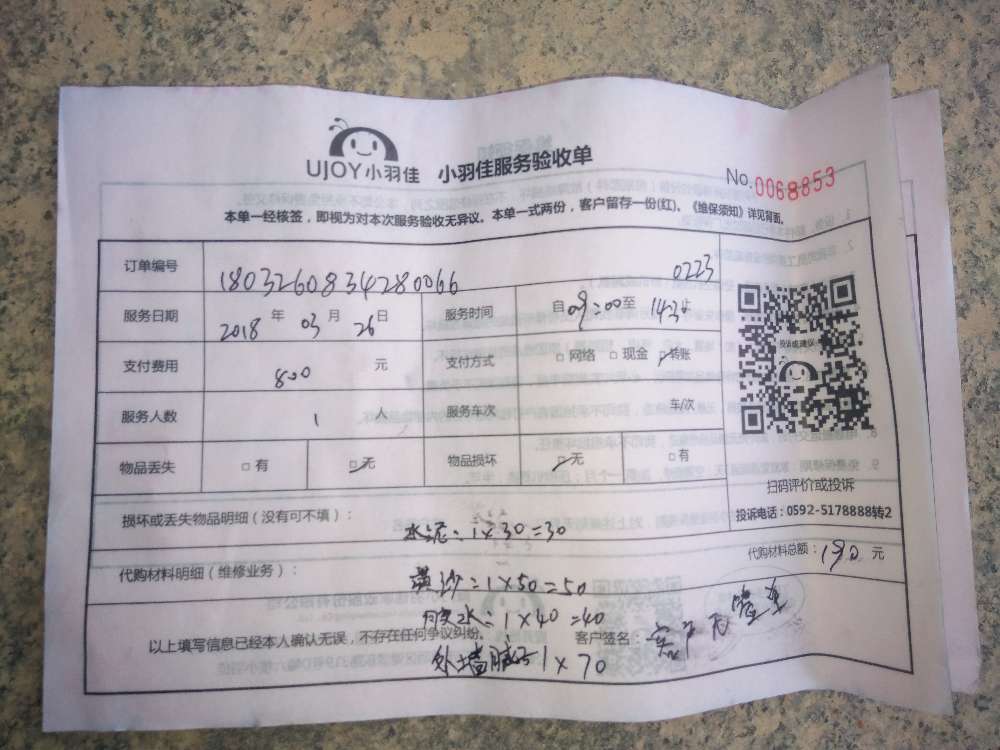 UJOY小羽佳 小羽佳服务验收单
No.0068853
本单一经核签，即视为对本次服务验收无异议。本单一式两份，客户留存一份(红)，《维保须知》详见背面。
订单编号 180326083428 0066 0223
服务日期 2018 年 03 月 26 日 服务时间 自 09:00 至 14:30
支付费用 800 元 支付方式 □ 网络 □ 现金 □ 转账
服务人数 1 人 服务车次 车/次
物品丢失 □ 有 □ 无 物品损坏 □ 无 □ 有
投诉或建议
扫码评价或投诉
投诉电话：0592-5178888转2
损坏或丢失物品明细（没有可不填）：
水泥：1×30=30
代购材料总额：190 元
代购材料明细（维修业务）：
黄沙：1×50=50
胶水：1×40=40
以上填写信息已经本人确认无误，不存在任何争议纠纷。 客户签名：
外墙腻子1×70